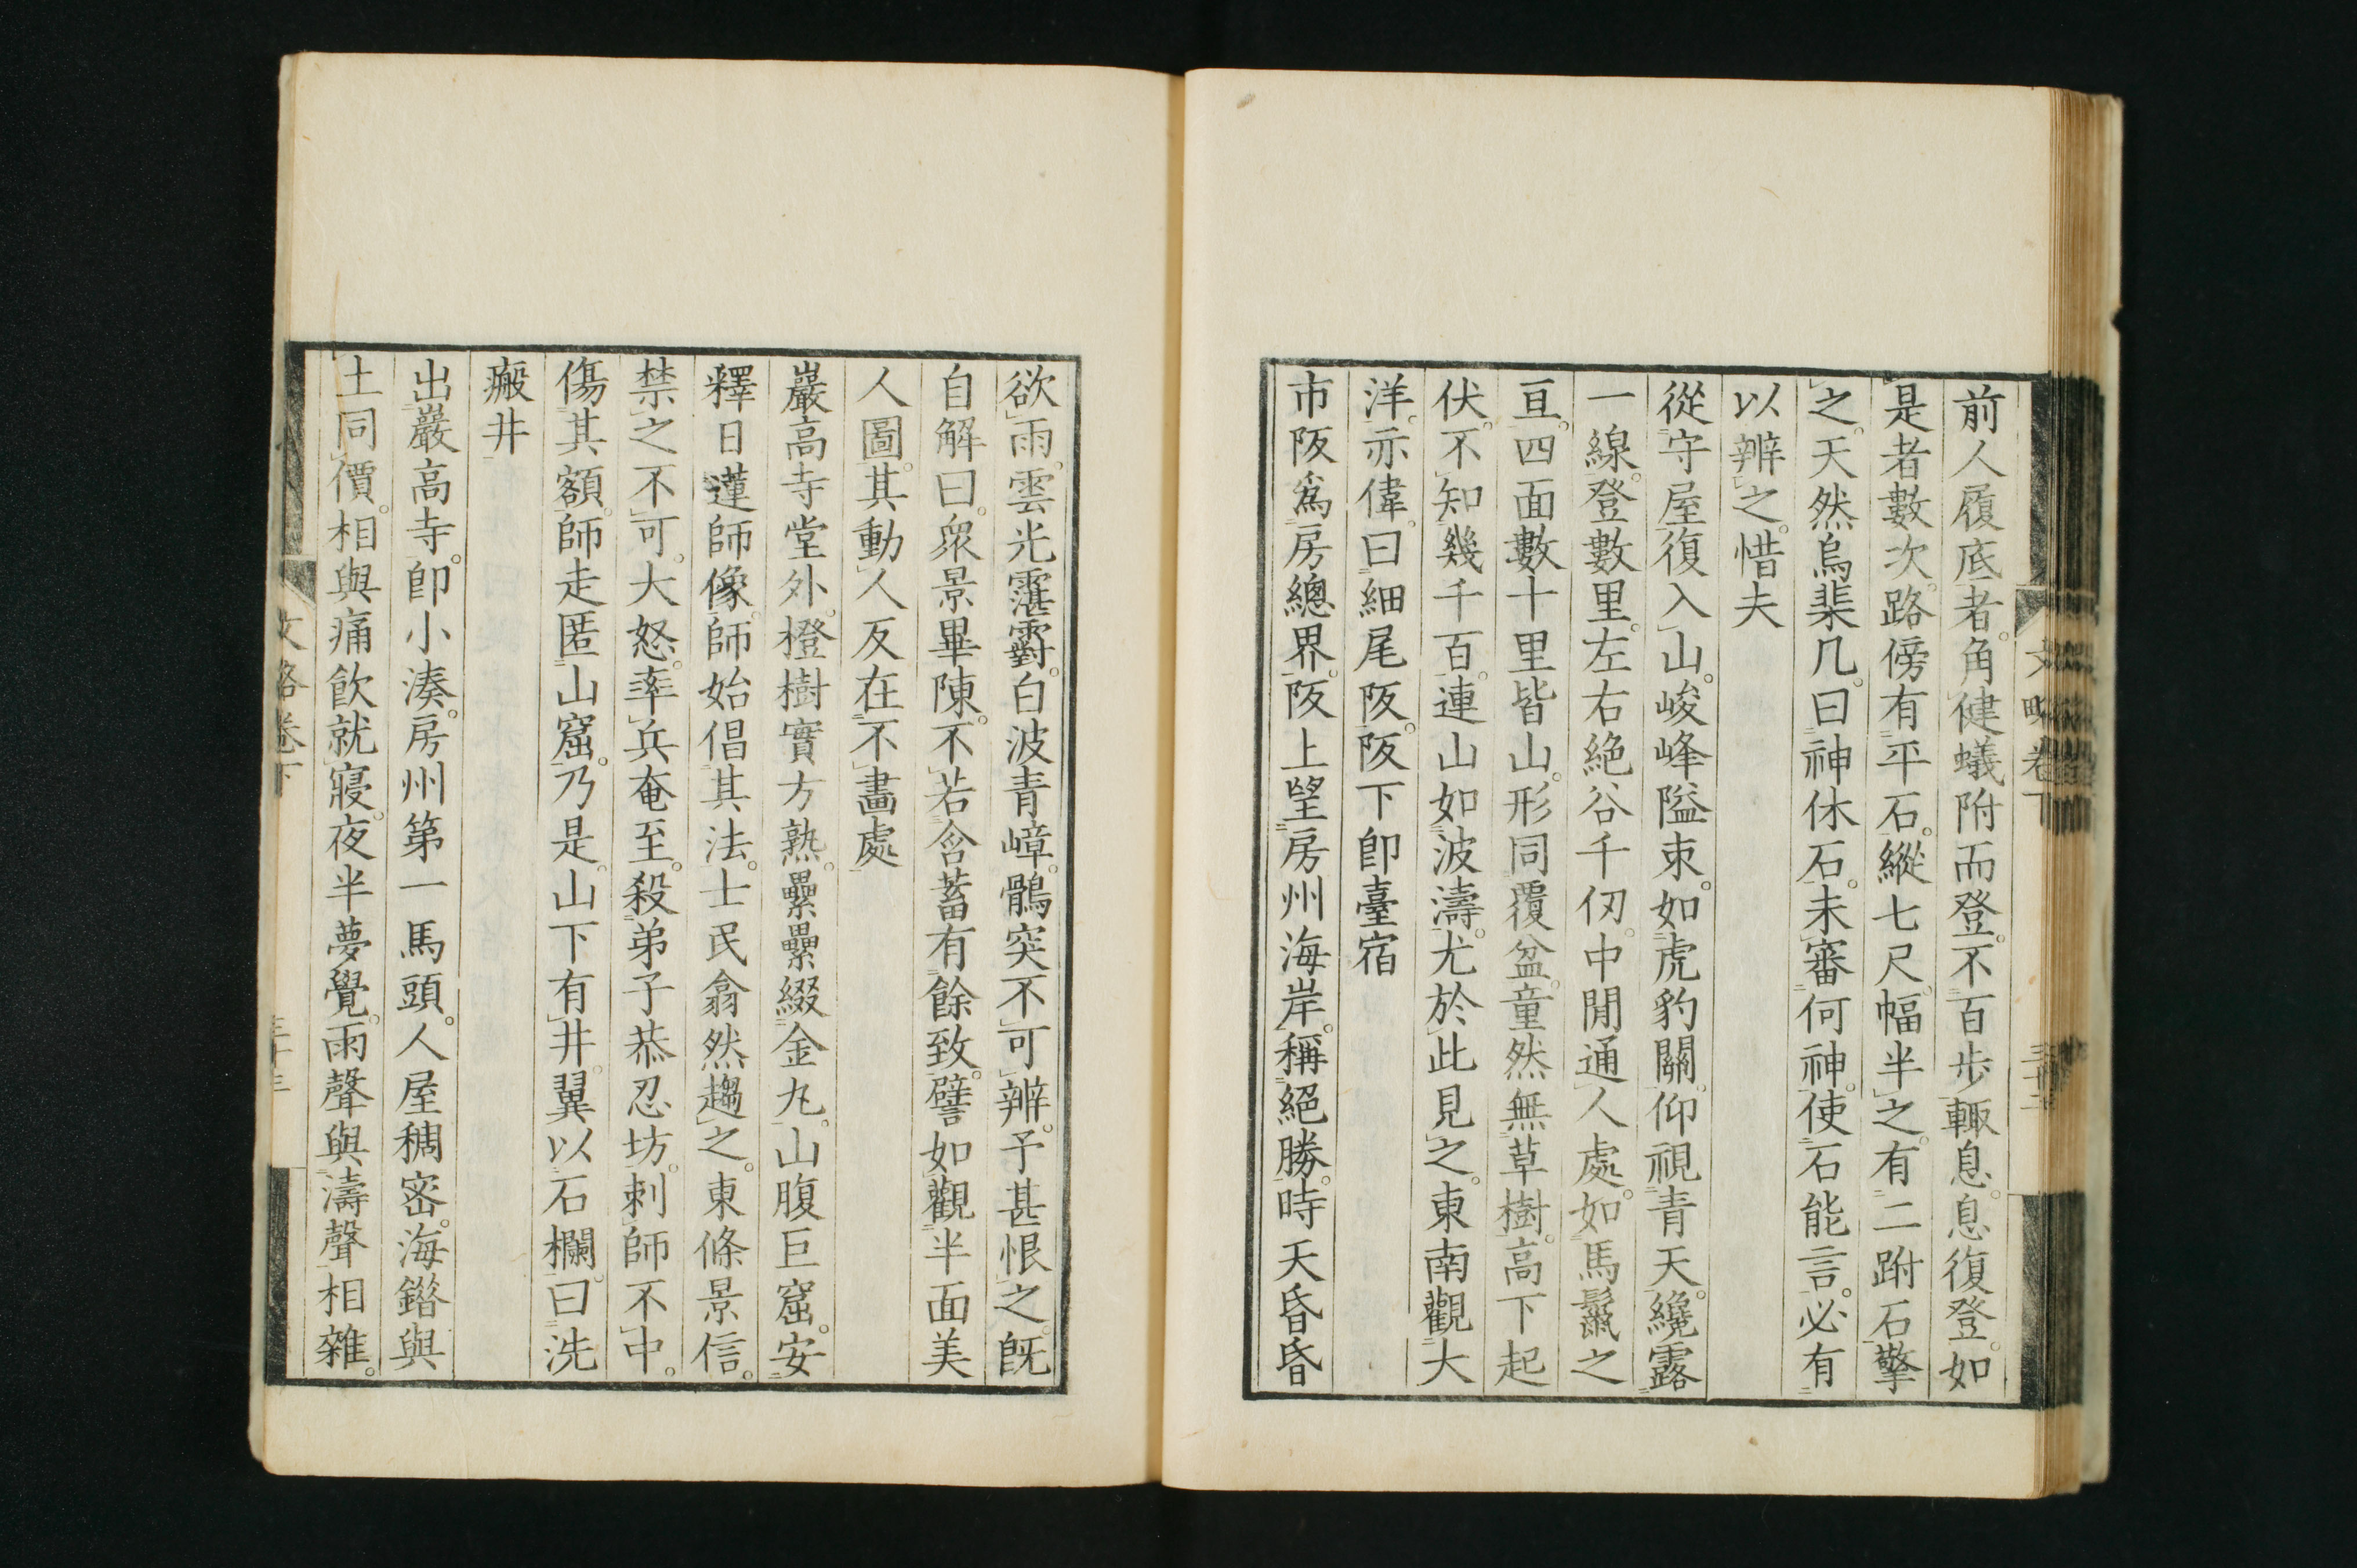 前人履底者。角健蟻附而登。不百步輙息。息復登。如
是者數次。路傍有平石。縱七尺。幅半之。有二跗石擎
之。天然烏棐几。曰神休石。未審何神。使石能言。必有
以辨之。惜夫
從守屋復入山。峻峰隘束。如虎豹關。仰視青天。纔露
一線。登數里。左右絕谷千仞。中閒通人處。如馬鬣之
亘。四面數十里皆山。形同覆盆。童然無草樹。高下起
伏。不知幾千百。連山如波濤。尤於此見之。東南觀大
洋。亦偉。曰細尾阪。阪下卽臺宿
市阪爲房總界。阪上望房州海岸。稱絕勝。時天昏昏
文略卷下
三十二
欲雨。雲光霮䨴。白波青嶂。鶻突不可辨。予甚恨之。旣
自解曰。衆景畢陳。不若含蓄有餘致。譬如觀半面美
人圖。其動人反在不畫處
巖高寺堂外。橙樹實方熟。纍纍綴金丸。山腹巨窟。安
釋日蓮師像。師始倡其法。士民翕然趨之。東條景信。
禁之不可。大怒。率兵奄至。殺弟子恭忍坊。刺師不中。
傷其額。師走匿山窟。乃是。山下有井。翼以石欄。曰洗
瘢井
出巖高寺。卽小湊。房州第一馬頭。人屋稠密。海錯與
土同價。相與痛飲就寢。夜半夢覺。雨聲與濤聲相雜。
文略卷下
三十三